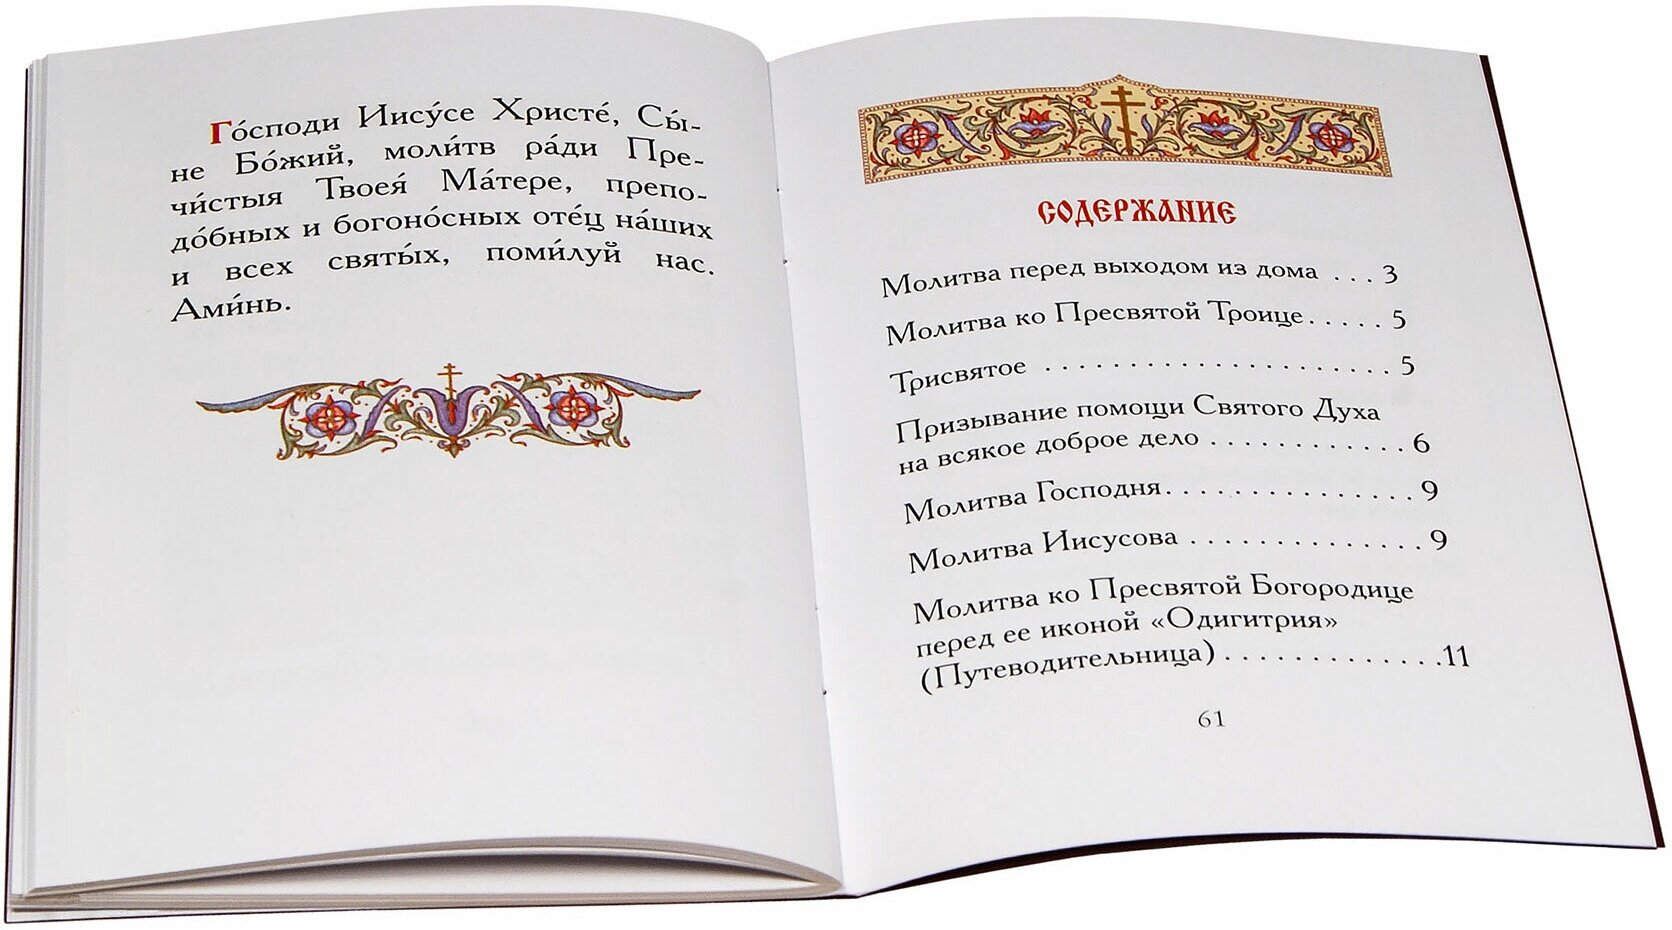 Го́споди Иису́се Христе́, Сы́-
не Бо́жий, моли́тв ра́ди Пре-
чи́стыя Твоея́ Ма́тере, препо-
до́бных и богоно́сных оте́ц на́ших
и всех святы́х, поми́луй нас.
Ами́нь.
СОДЕРЖАНИЕ
Молитва перед выходом из дома . . . 3
Молитва ко Пресвятой Троице. . . . . 5
Трисвятое . . . . . . . . . . . . . . . . . . . . 5
Призывание помощи Святого Духа
на всякое доброе дело . . . . . . . . . . . . 6
Молитва Господня. . . . . . . . . . . . . . . 9
Молитва Иисусова . . . . . . . . . . . . . . 9
Молитва ко Пресвятой Богородице
перед ее иконой «Одигитрия»
(Путеводительница) . . . . . . . . . . . . .11
61